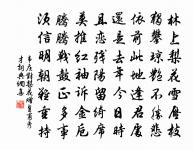 林上梨花雪壓枝
獨攀瓊艷不勝悲
依前此地逢君處
還是去年今日時
且戀殘陽留綺席
莫推紅袖訴金卮
騰騰戰鼓正多事
須信明朝難重持
韋莊對梨花贈皇甫秀
才詞典網書